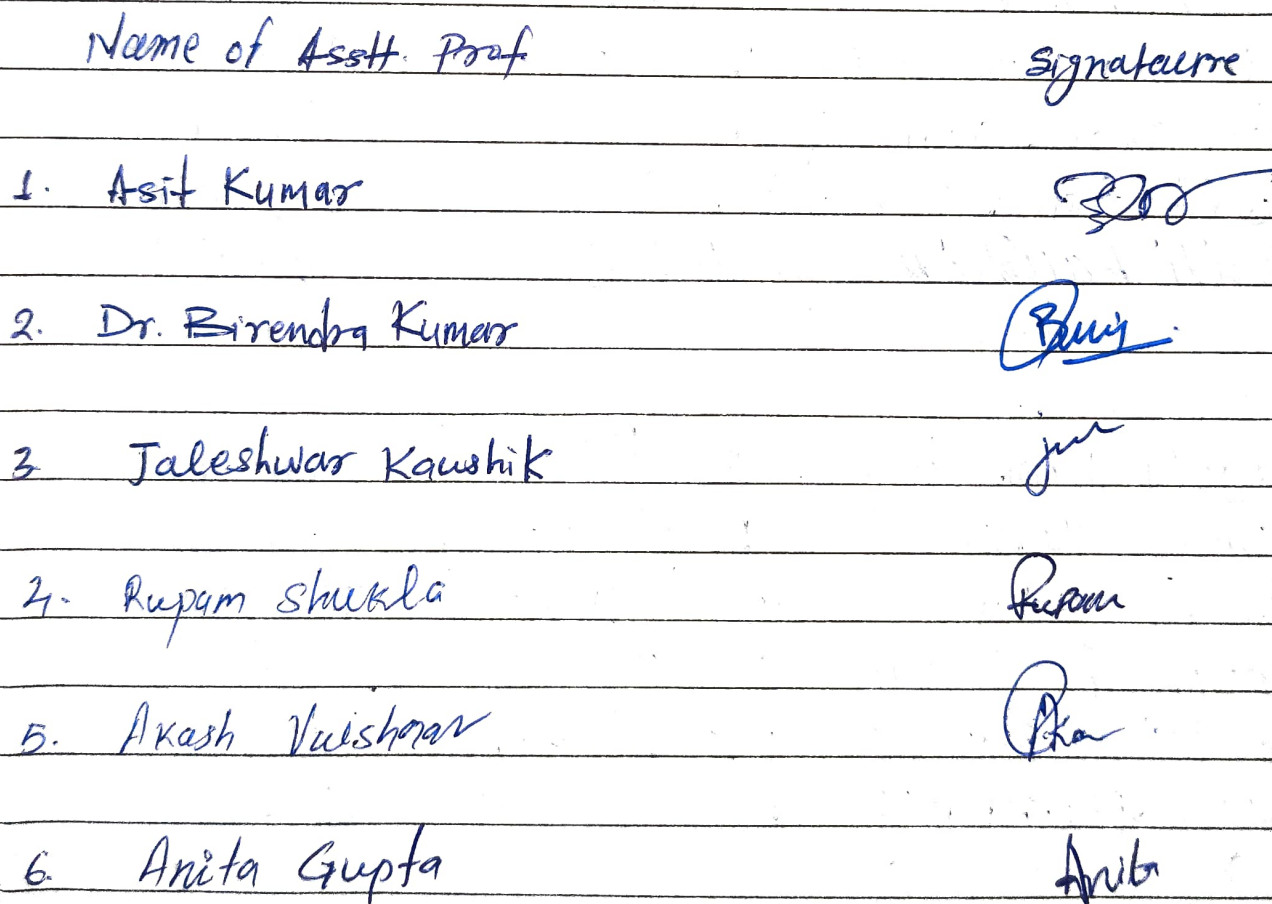 Name of Asstt. Prof Signataure
1. Asit Kumar
2. Dr. Birendra Kumar
3 Jaleshwar Kaushik
4. Rupam Shukla Rupam
5. Akash Vaishnav
6. Anita Gupta Anita